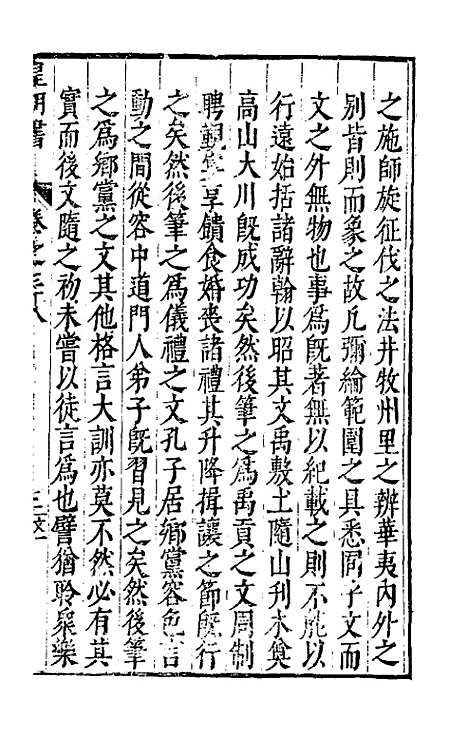 之施師旋征伐之法井牧州里之辨華夷內外之
別皆則而象之故凡彌綸範圍之具悉囿乎文而
文之外無物也事爲旣著無以紀載之則不能以
行遠始括諸辭翰以昭其文禹敷土隨山刊木奠
高山大川旣成功矣然後筆之爲禹貢之文周制
聘覲宴享饋食婚喪諸禮其升降揖讓之節旣行
之矣然後筆之爲儀禮之文孔子居鄉黨容色言
動之間從容中道門人弟子旣習見之矣然後筆
之爲鄉黨之文其他格言大訓亦莫不然必有其
實而後文隨之初未嘗以徒言爲也譬猶聆衆樂
皇明書 卷之三十八